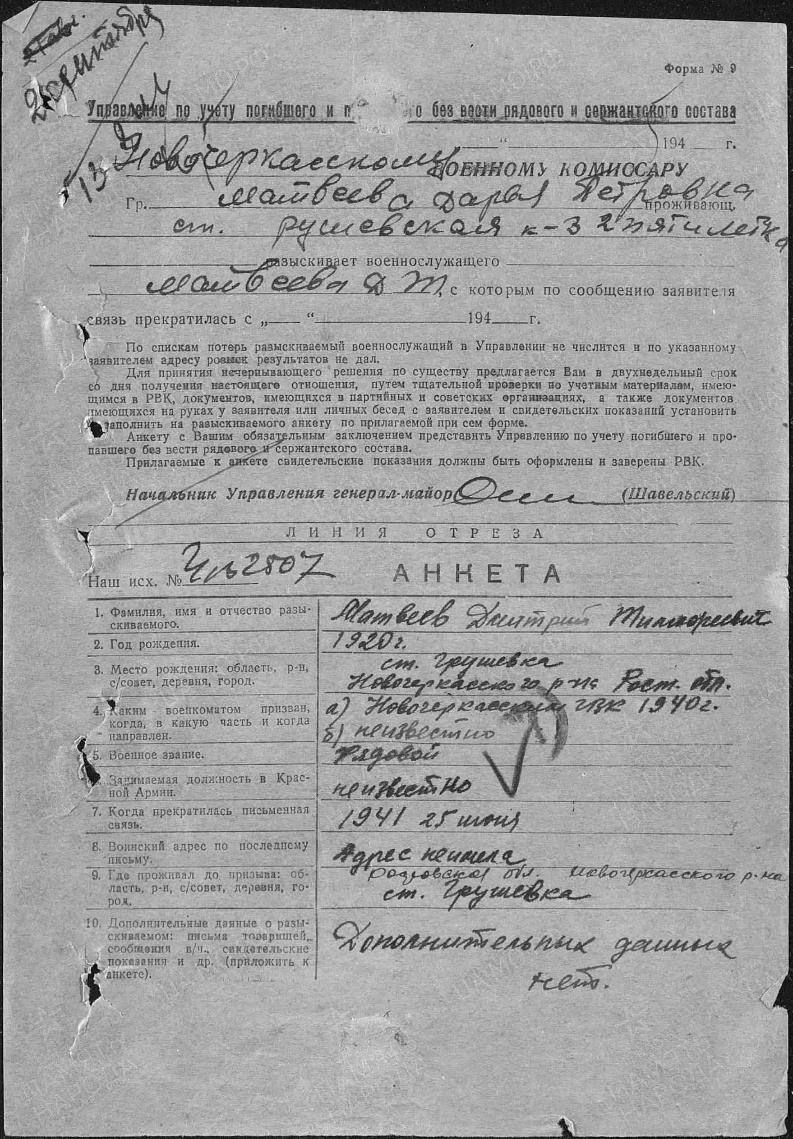 Форма № 9
Управление по учету погибшего и п го без вести рядового и сержантского состава
„ “ 194 г.
Новочеркасскому ВОЕННОМУ КОМИССАРУ
Гр. Матвеева Дарья Петровна проживающ.
ст. рушевская к-з 2 пятилетка
разыскивает военнослужащего
Матвеева Д Т, с которым по сообщению заявителя
связь прекратилась с „ “ 194 г.
По спискам потерь разыскиваемый военнослужащий в Управлении не числится и по указанному
заявителем адресу розыск результатов не дал.
Для принятия исчерпывающего решения по существу предлагается Вам в двухнедельный срок
со дня получения настоящего отношения, путем тщательной проверки по учетным материалам, имею-
щимся в РВК, документов, имеющихся в партийных и советских организациях, а также документов
имеющихся на руках у заявителя или личных бесед с заявителем и свидетельских показаний установить
и заполнить на разыскиваемого анкету по прилагаемой при сем форме.
Анкету с Вашим обязательным заключением представить Управлению по учету погибшего и про-
павшего без вести рядового и сержантского состава.
Прилагаемые к анкете свидетельские показания должны быть оформлены и заверены РВК.
Начальник Управления генерал-майор (Шавельский)
ЛИНИЯ ОТРЕЗА
Наш исх. № 2507 АНКЕТА
1. Фамилия, имя и отчество разы-
скиваемого.
Матвеев Дмитрий Тимофеевич
2. Год рождения.
1920г.
3. Место рождения: область, р-н,
с/совет, деревня, город.
ст. Грушевка
Новочеркасского р-на Рост. обл.
4. Каким военкоматом призван,
когда, в какую часть и когда
направлен.
а) Новочеркасский ГВК 1940г.
б) неизвестно
5. Военное звание.
Рядовой
6. Занимаемая должность в Крас-
ной Армии.
неизвестно
7. Когда прекратилась письменная
связь.
1941 25 июня
8. Воинский адрес по последнему
письму.
Адрес неимела
9. Где проживал до призыва: об-
ласть, р-н, с/совет, деревня, го-
род.
Новочеркасского р-на
ст. Грушевка
10. Дополнительные данные о разы-
скиваемом: письма товарищей,
сообщения в/ч., свидетельские
показания и др. (приложить к
анкете).
Дополнительных данных
нет.